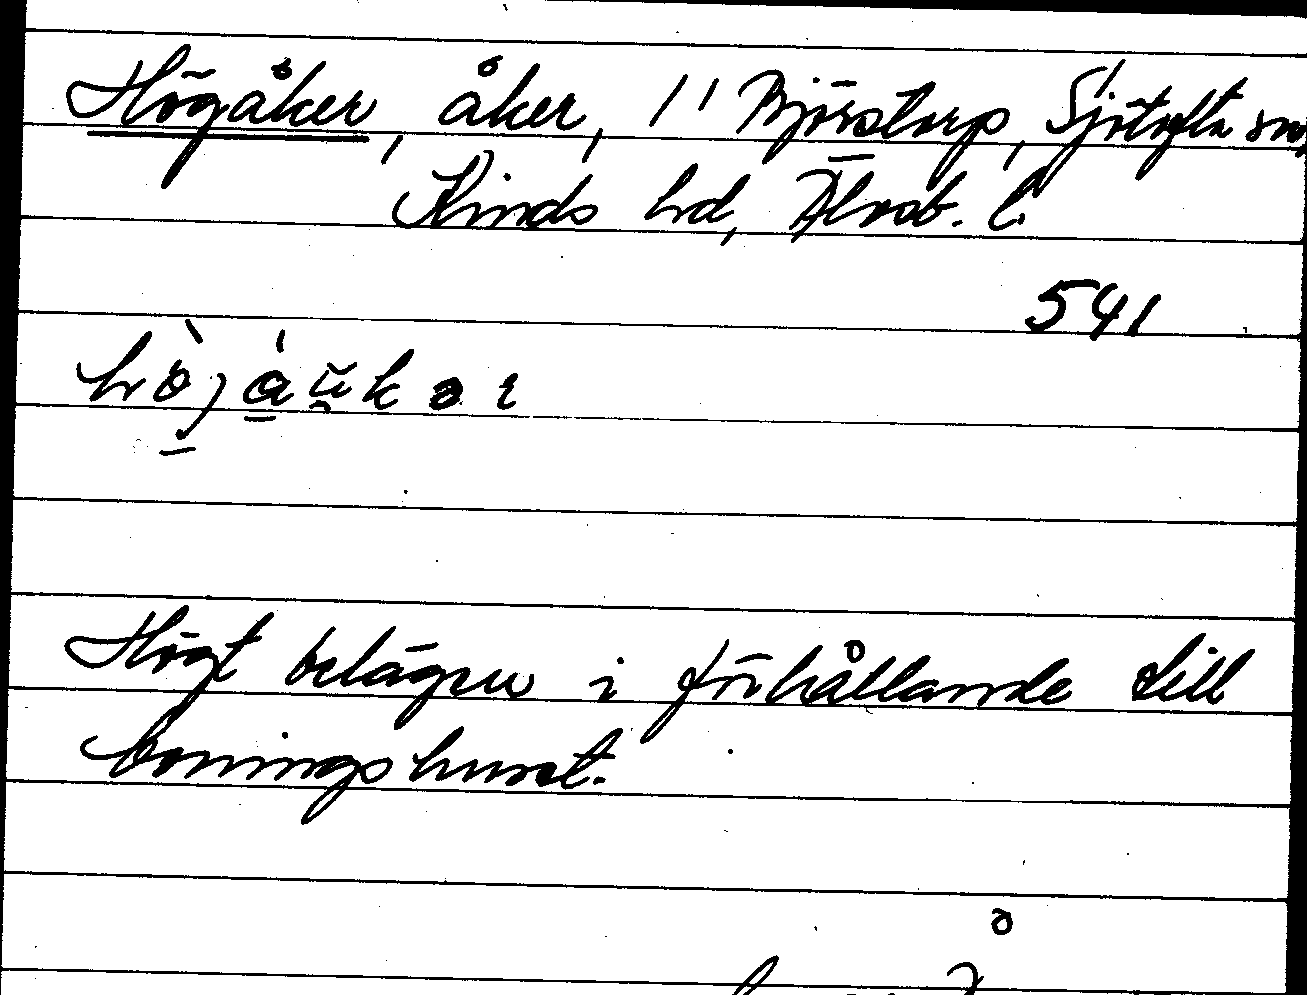 Högåker, åker, 1/1 Björstorp, Sjötofta sn,
Kinds hd, Älvsb. l.
541
Högt belägen i förhållande till
boningshuset.